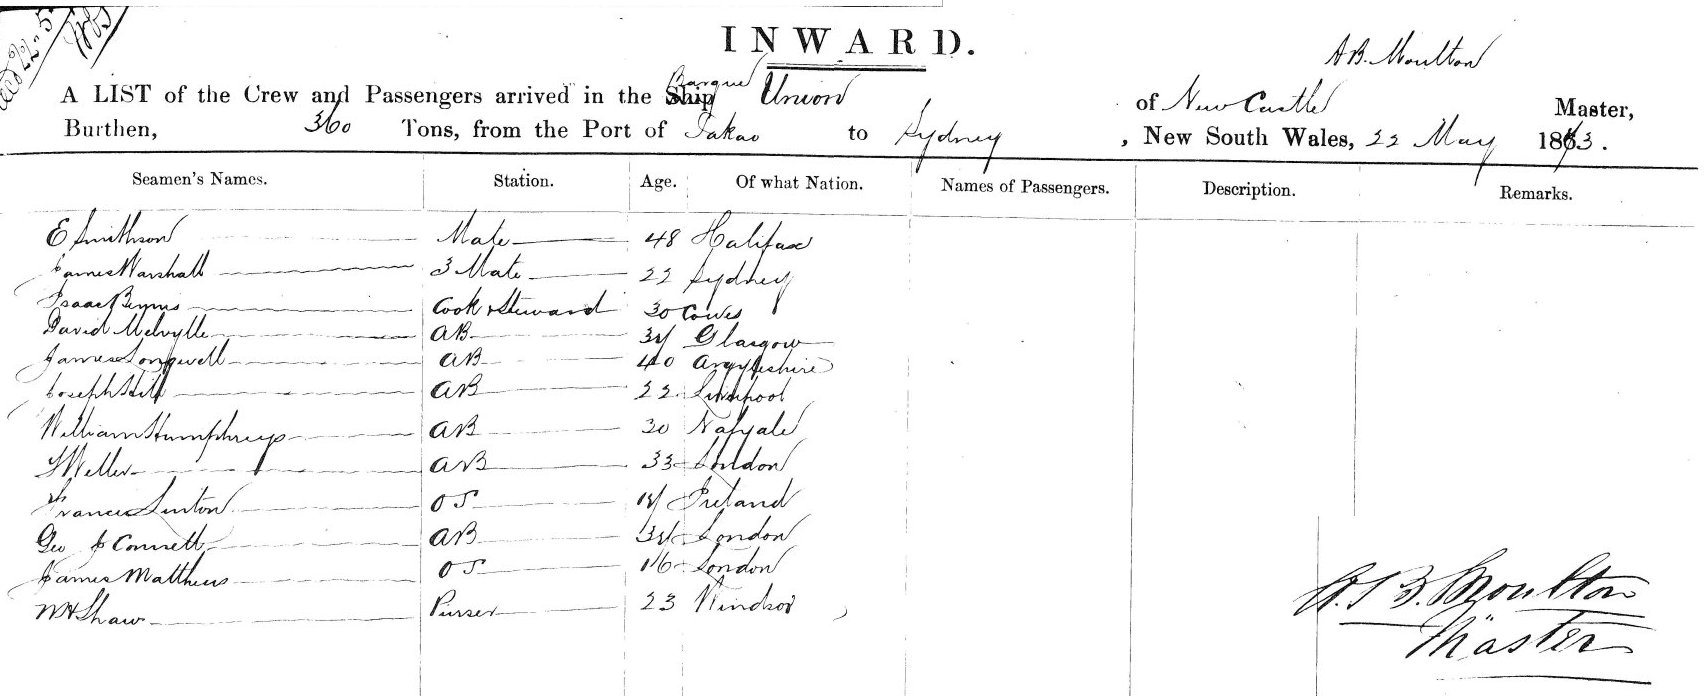 22-5
INWARD.
A B. Moulton
Barque
A LIST of the Crew and Passengers arrived in the Ship Union of New Castle Master,
Burthen, 360 Tons, from the Port of Takao to Sydney, New South Wales, 22 May 1863.
Seamen's Names. Station. Age. Of what Nation. Names of Passengers. Description. Remarks.
E Smithson Mate 48 Halifax
James Marshall 3 Mate 22 Sydney
Isaac Binns Cook & Steward 30 Cowes
David Melvylle AB Glasgow
James Longwell AB 40 Argyleshire
Joseph Hill AB 22 Liverpool
William Humphreys AB 30
Weller AB 33 London
Francis Linton OS Ireland
Geo J Connett AB London
James Matthews OS 16 London
W H Shaw Purser 23 Windsor
B. Moulton
Master